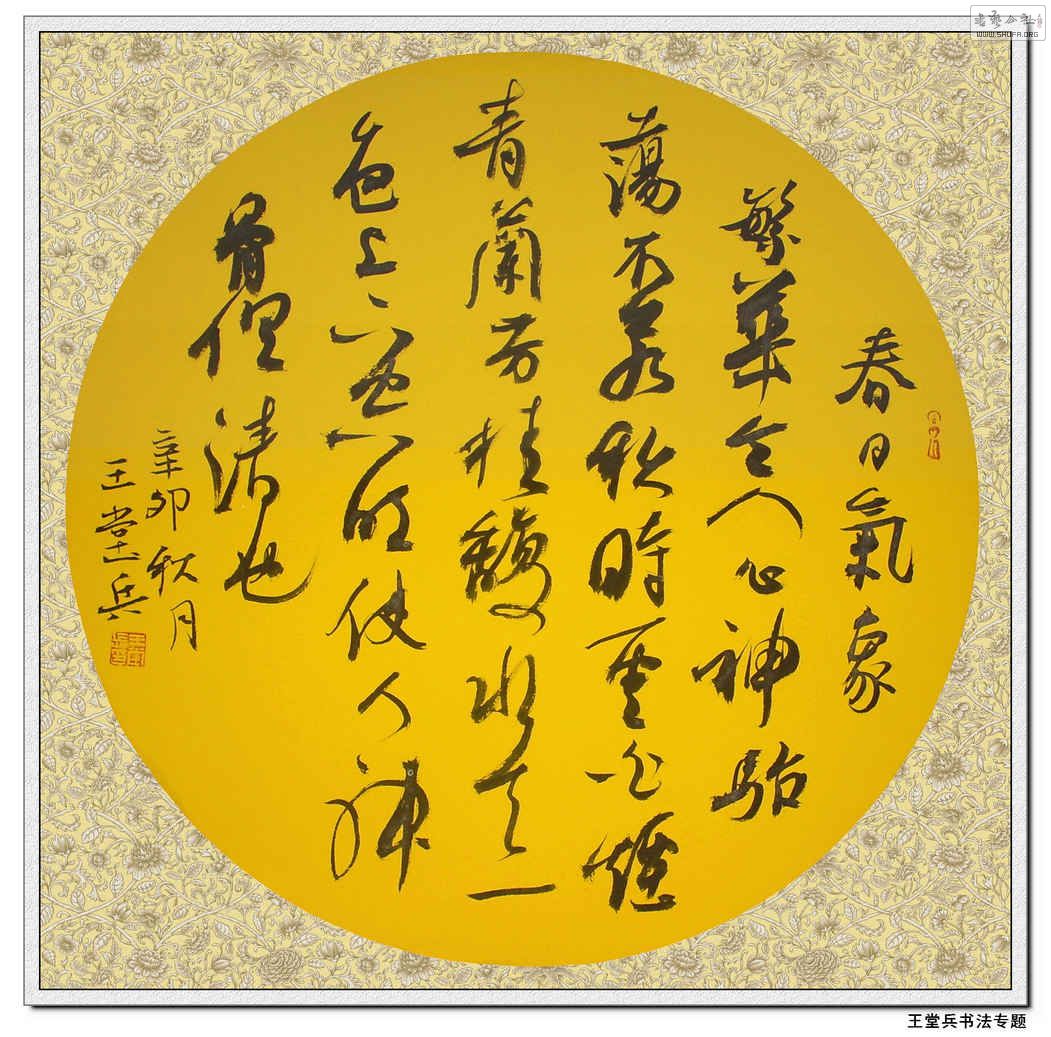 春日氣象
繁華令人心神駘
蕩不若秋時雲白煙
青蘭芳桂馥水天一
色上下空明使人神
骨俱清也
辛卯秋月
王堂兵
书艺公社
WWW.SHUFA.ORG
王堂兵书法专题